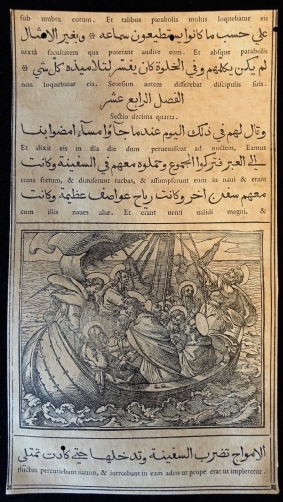 sub umbra eorum. Et talibus parabolis multis loquebatur eis
على حسب ما كانوا يستطيعون سماعه * وبغير الامثال
iuxta facultatem qua poterant audire eum. Et absque parabolis
لم يكن يكلمهم وفي الخلوة كان يفسر لتلاميذه كل شي *
non loquebatur eis. Seorsum autem differebat discipulis suis.
الفصل الرابع عشر
Sectio decima quarta.
وقال لهم في ذلك اليوم عندما جاؤا مساء امضوا بنا
Et dixit eis in illa die dum peruenissent ad noctem, Eamus
الى العبر فتركوا الجموع وتملوه معهم في السفينة وكانت
trans fretum, & dimiserunt turbas, & assumpserunt eum in naui & erant
معهم سفن اخر وكانت رياح عواصف عظيمة وكانت
cum illis naues aliæ. Et erant uenti ualidi magni, &
الامواج تضرب السفينة وتدخلها حتى كادت تمتلي
fluctus percutiebant nauim, & introibant in eam adeo ut prope erat ut impleretur.